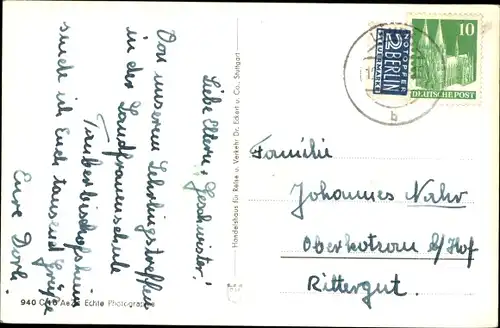 Liebe Eltern u. Geschwister!
Von unserem Lehrlingstreffen
in der Landfrauenschule
Tauberbischofsheim
sende ich Euch tausend Grüße
Eure Dorle.
Handelshaus für Reise u. Verkehr Dr. Eckert u. Co., Stuttgart
940 Echte Photographie
NOTOPFER
2 BERLIN
STEUERMARKE
10
DEUTSCHE POST
b
Familie
Johannes Nahr
Oberkotzau b/Hof
Rittergut.